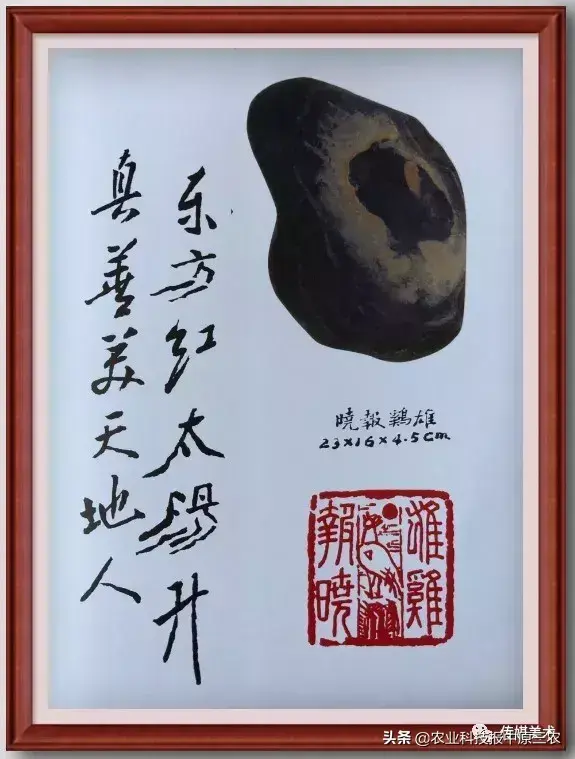 东方红太阳升
真善美天地人
曉報鷄雄
23×16×4.5cm
雄雞
報曉
头条 @农业科技报中原三农
传媒美术